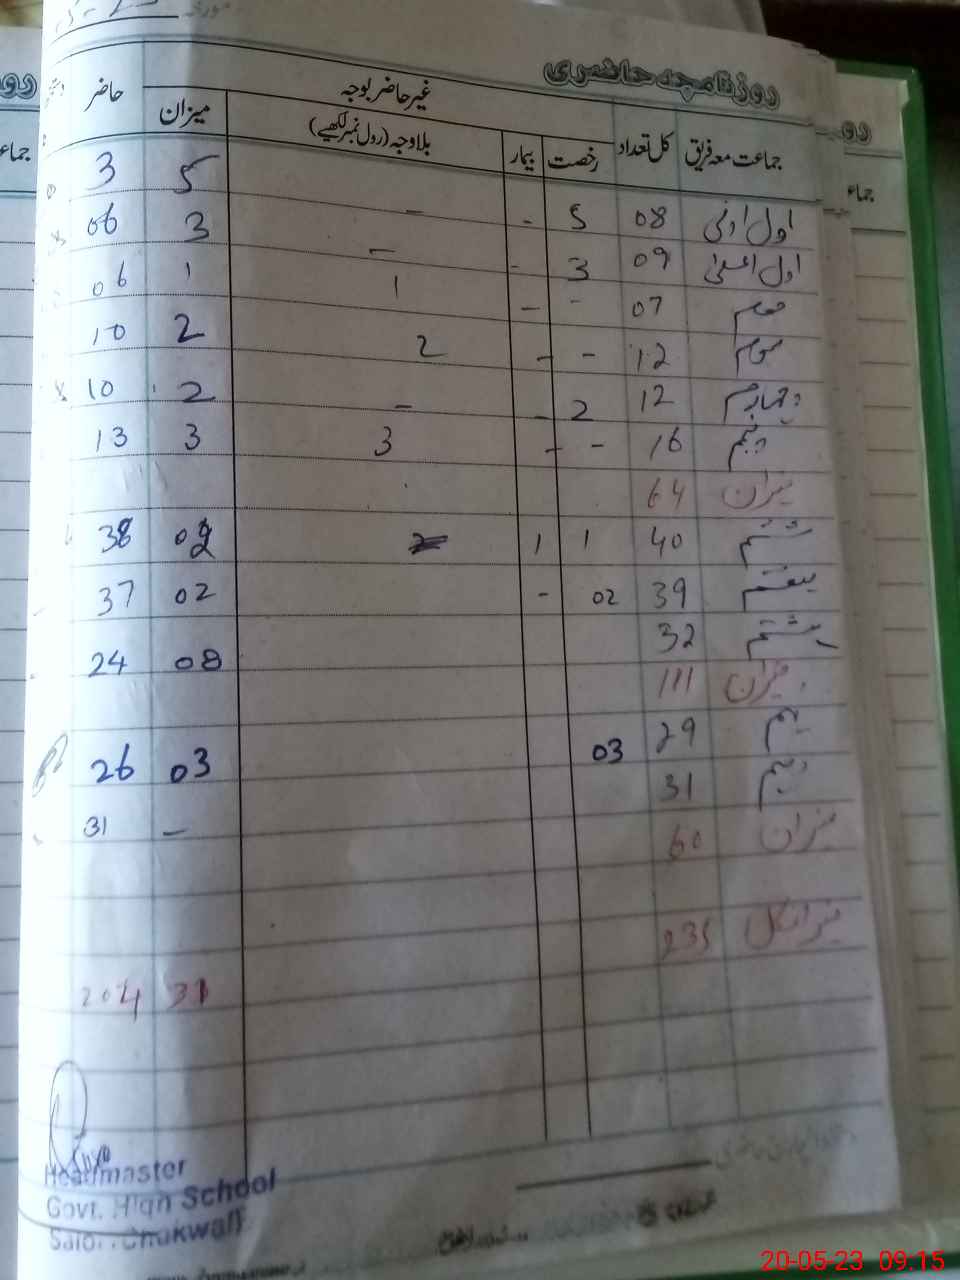 روزنامچہ حاضری
جماعت معہ فریق کل تعداد غیر حاضر بوجہ حاضر
رخصت بیمار بلاوجہ (رول نمبر لکھیے) میزان
اول ادنی 08 5 - - 5 3
اول اعلیٰ 09 3 - - 3 06
07 - - 1 1 06
سوم 12 - - 2 2 10
چہارم 12 2 - - 2 10
پنجم 16 - - 3 3 13
میزان 64
ششم 40 1 1 02 38
ہفتم 39 02 - 02 37
ہشتم 32 08 24
میزان 111
نہم 29 03 03 26
دہم 31 - 31
میزان 60
میزان کل 235 31 204
Headmaster
Govt. High School
Chakwal
20-05-23 09:15